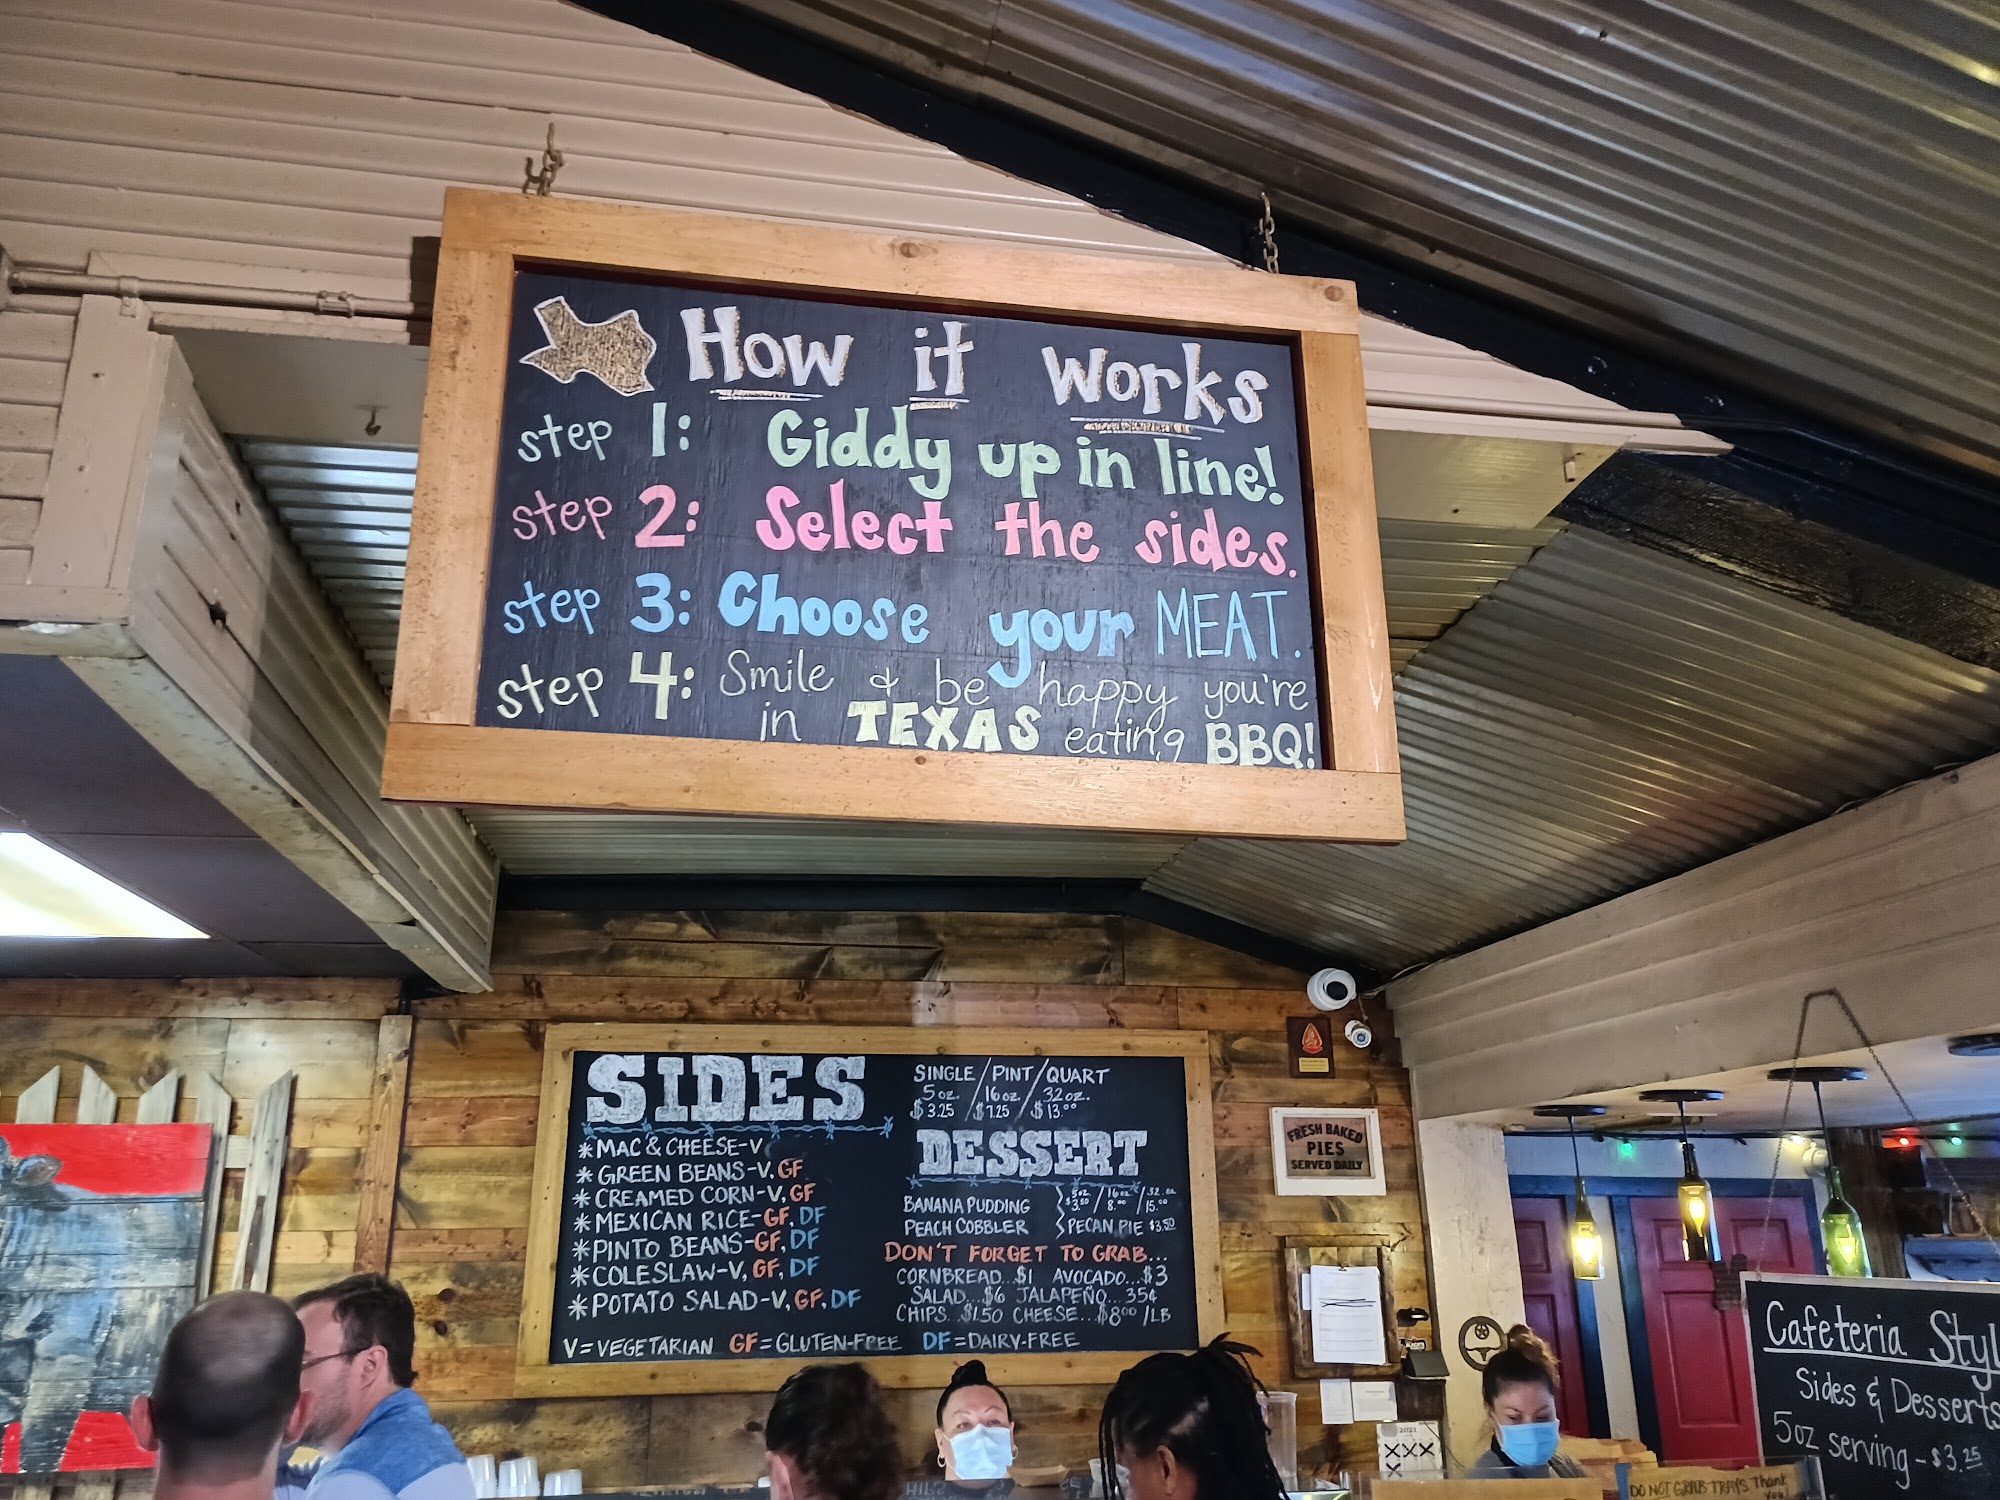 How it works
step 1: Giddy up in line!
step 2: Select the sides.
step 3: Choose your MEAT.
step 4: Smile & be happy you're
in TEXAS eating BBQ!
SIDES
* MAC & CHEESE-V
* GREEN BEANS-V, GF
* CREAMED CORN-V, GF
* MEXICAN RICE-GF, DF
* PINTO BEANS-GF, DF
* COLESLAW-V, GF, DF
* POTATO SALAD-V, GF, DF
V=VEGETARIAN GF=GLUTEN-FREE DF=DAIRY-FREE
SINGLE/PINT/QUART
5 oz. / 16 oz / 32 oz.
$3.25 / $7.25 / $13.00
DESSERT
BANANA PUDDING
PEACH COBBLER
5oz / 16oz / 32 oz
$3.50 / 8.00 / 15.00
PECAN PIE $3.50
DON'T FORGET TO GRAB...
CORNBREAD...$1 AVOCADO...$3
SALAD...$6 JALAPEÑO...35¢
CHIPS...$1.50 CHEESE...$8.00/LB
FRESH BAKED
PIES
SERVED DAILY
2021
XXX
X
Cafeteria Styl
Sides & Desserts
5oz serving - $3.25
DO NOT GRAB TRAYS Thank
You!